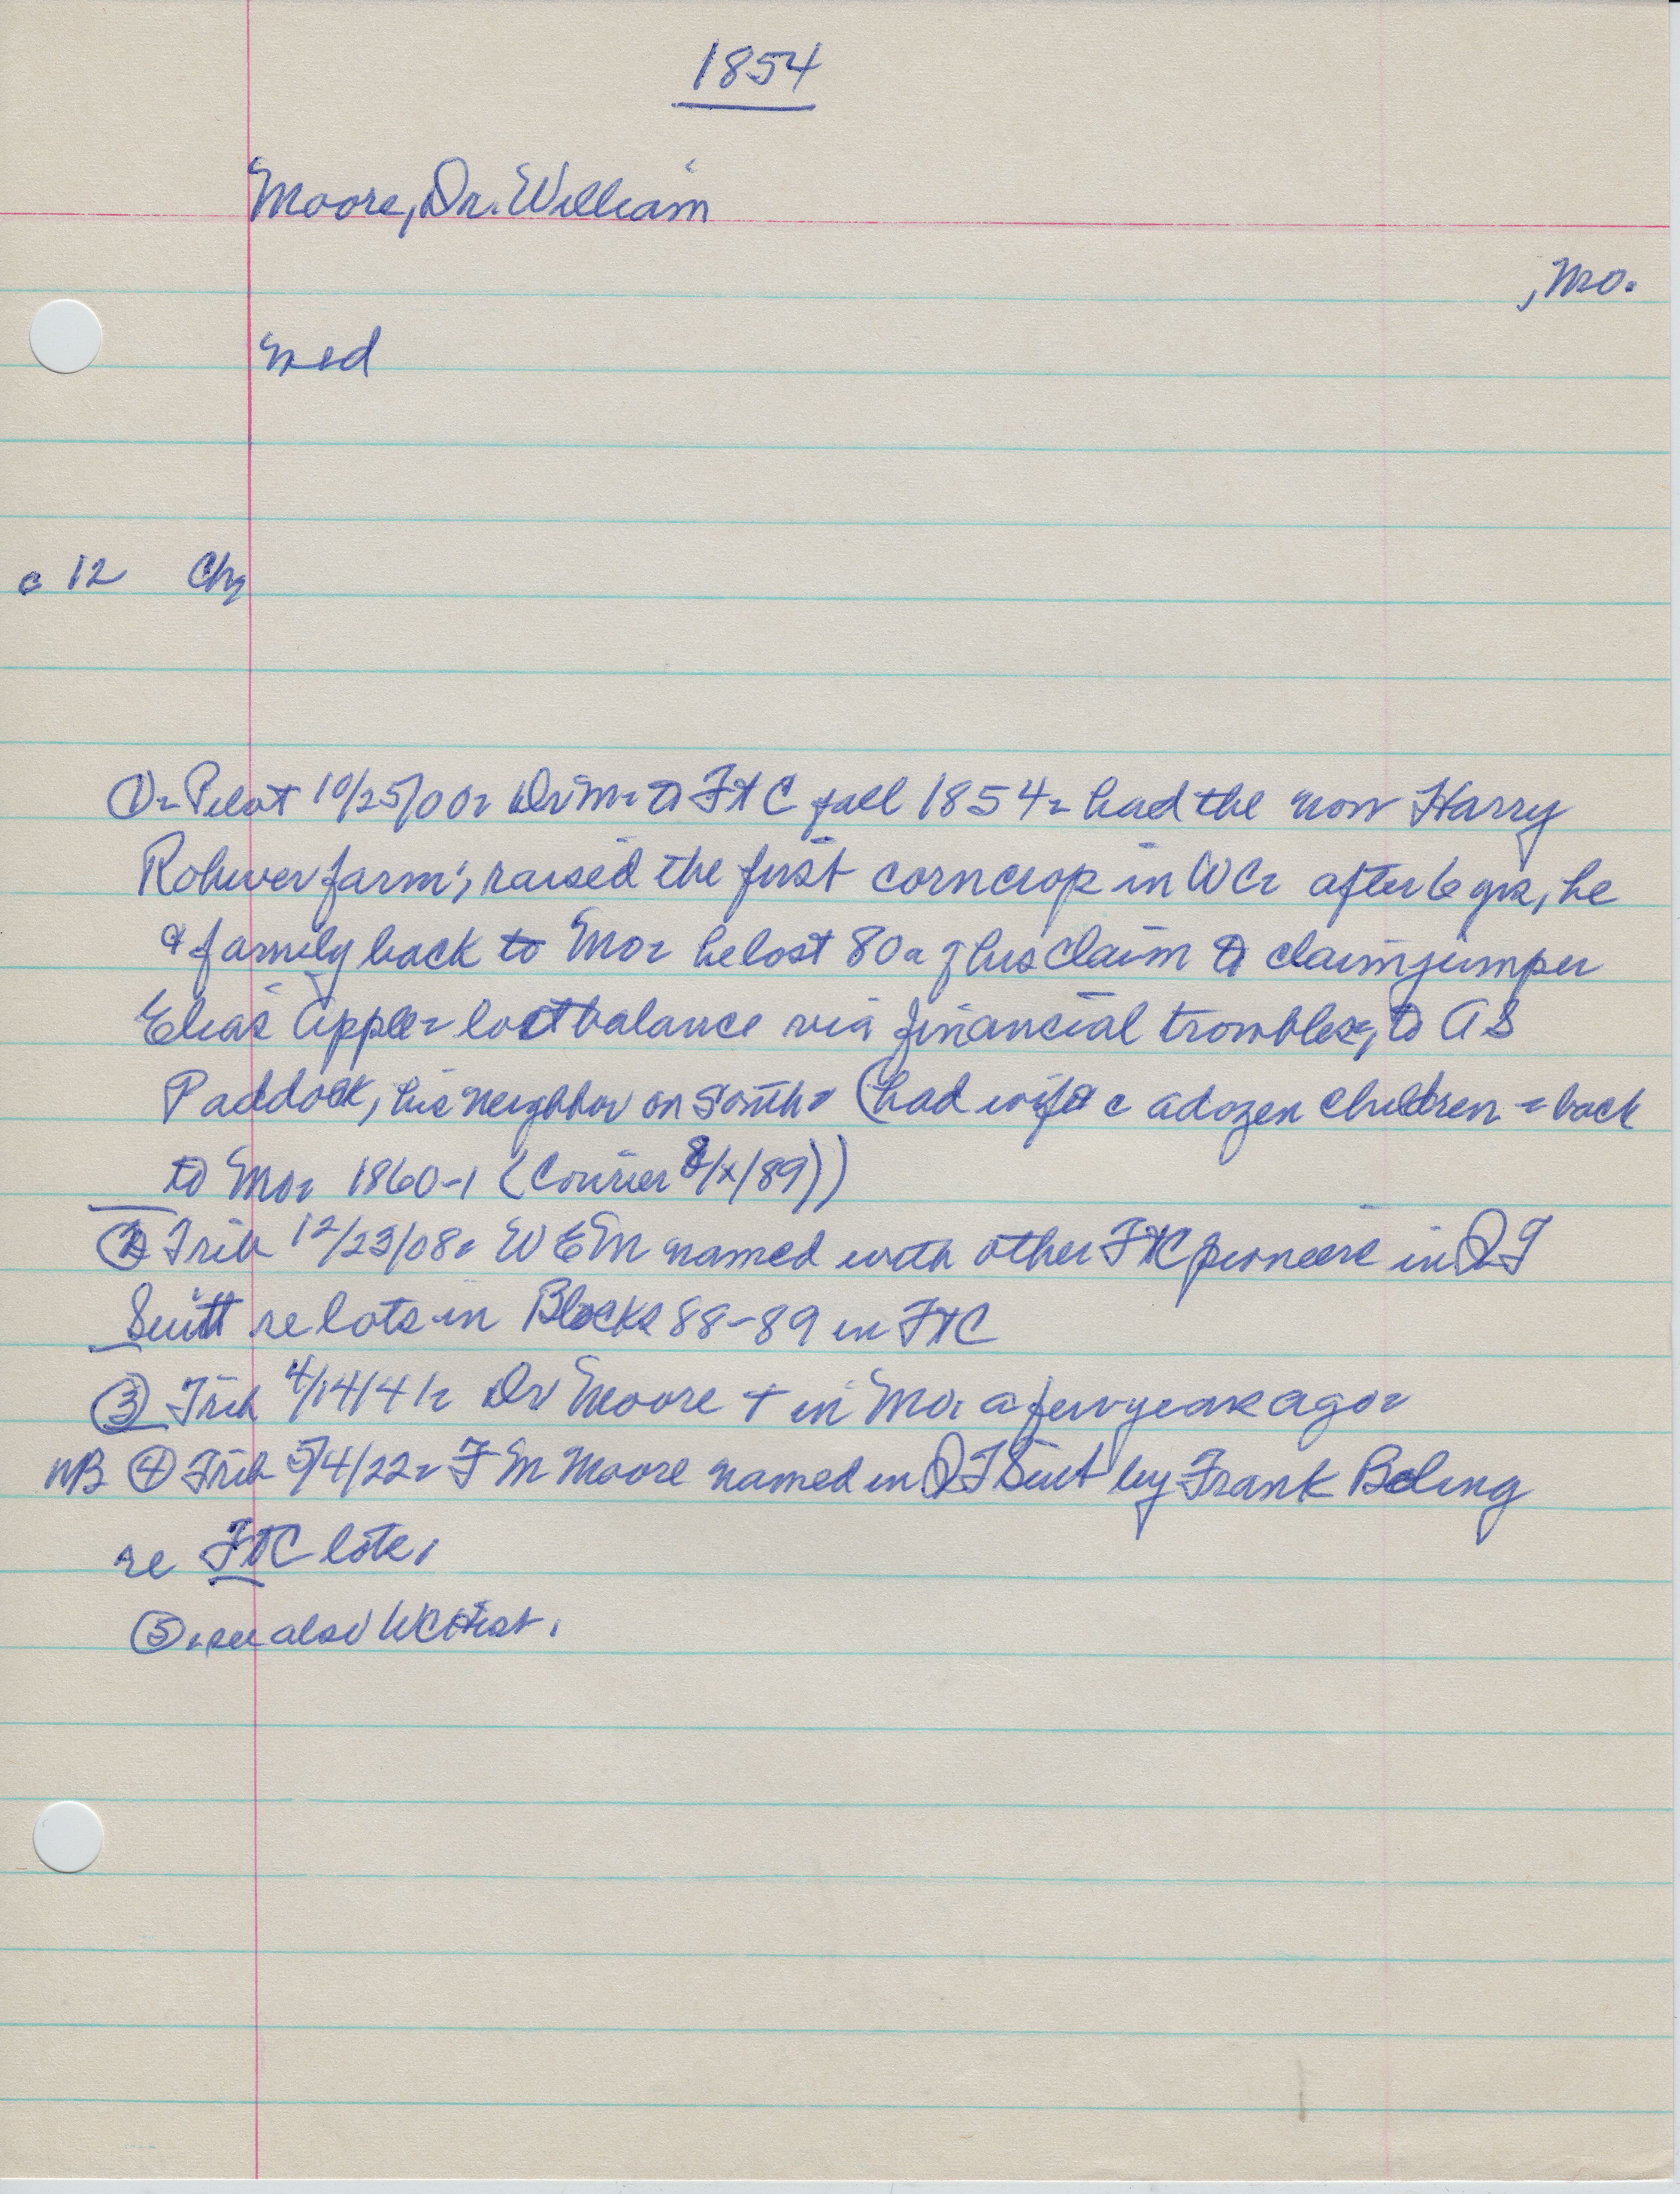 1854
Moore, Dr. William
, Mo.
med
c 12 Ch
①- Pilot 10/25/00- Dr M- to FtC fall 1854- had the now Harry
Rohwer farm; raised the first corn crop in WC- after 6 yrs, he
& family back to Mo- he lost 80a of his claim to claim jumper
Elias Apple- lost balance via financial troubles, to A S
Paddock, his neighbor on south- (had wife c a dozen children - back
to Mo- 1860-1 (Courier 8/x/89))
② Trib 12/23/08- W E M named with other FtC pioneers in QT
Suitt re lots in Blocks 88-89 in FtC
③ Trib 4/14/41- Dr Moore + in Mo- a few years ago-
NB ④ Trib 5/4/22- F M Moore named in QT Suit by Frank Boling
re FtC lots.
⑤- see also WC Hist.